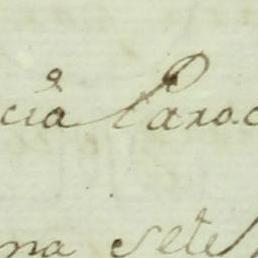 cia Paroc
na sete